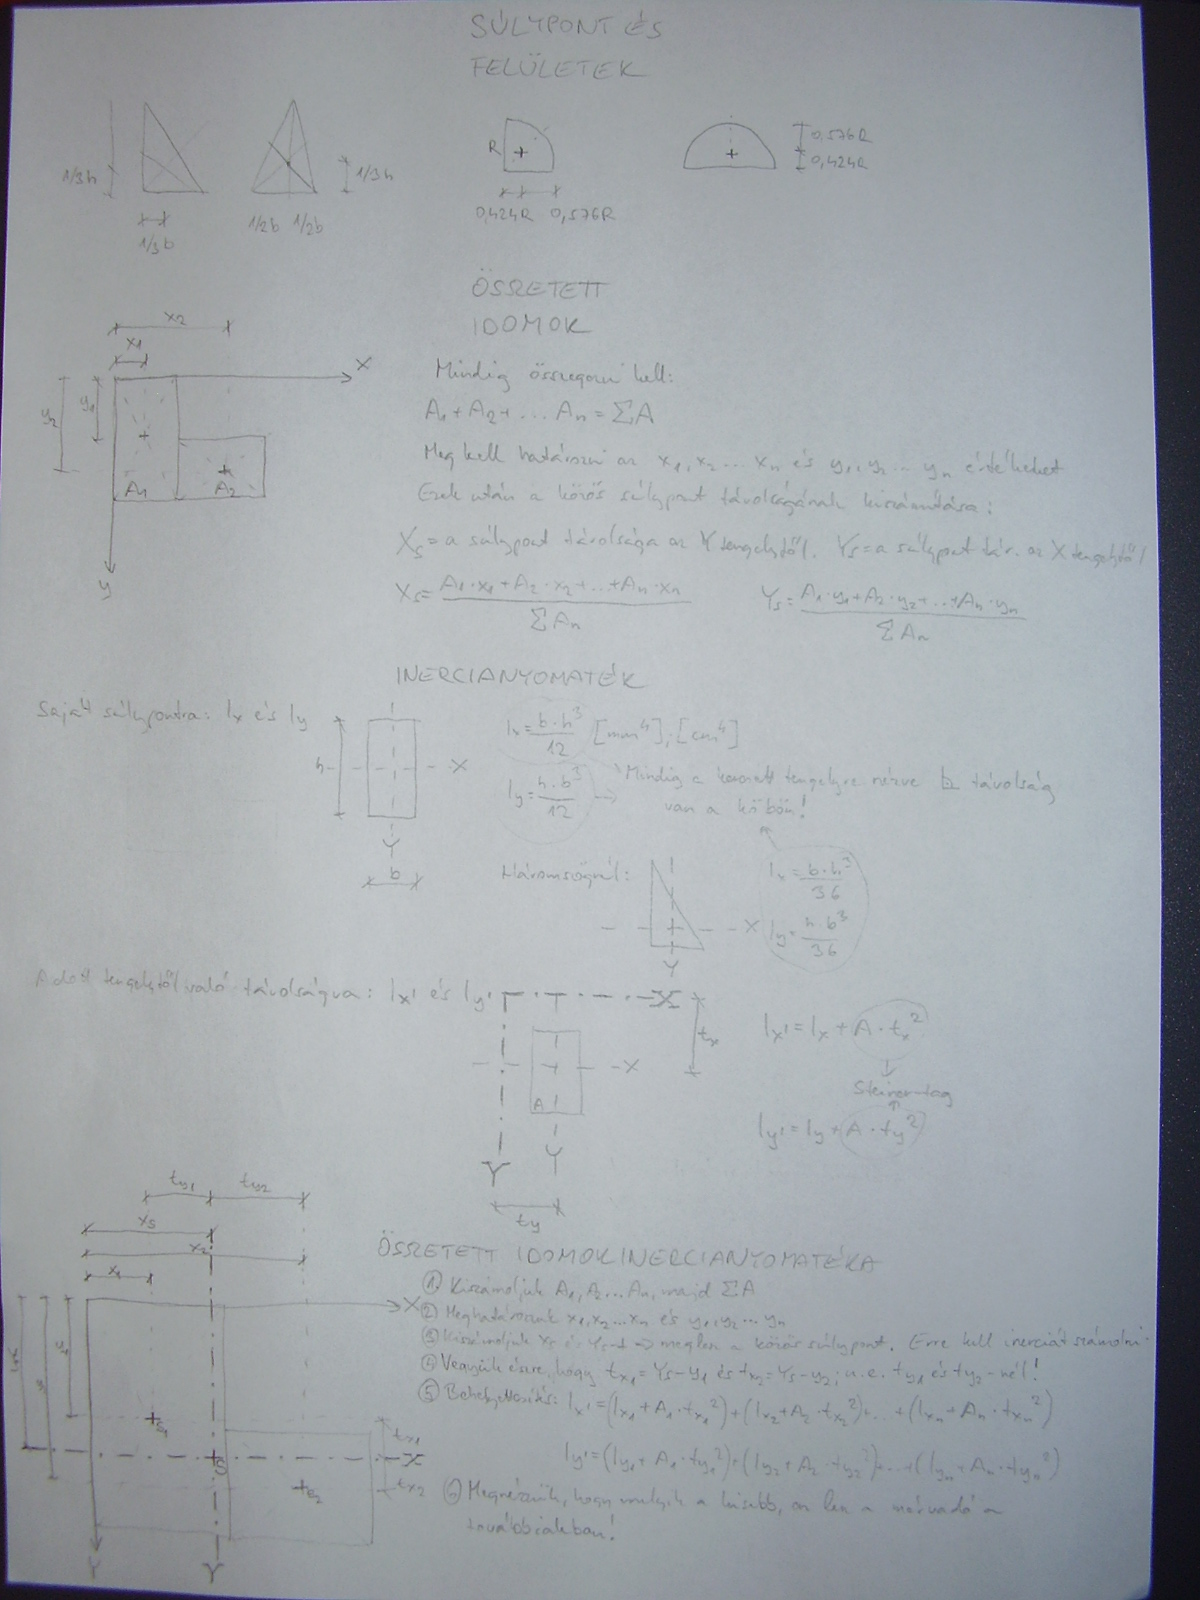 SÚLYPONT ÉS
FELÜLETEK
1/3h
1/3b
1/2b 1/2b
1/3h
R
0,424R 0,576R
0,576R
0,424R
ÖSSZETETT
IDOMOK
x2
x1
X
y2
y1
A1
A2
y
Mindig összegezni kell:
A1+A2+...An=ΣA
Meg kell határozni az x1,x2...xn és y1,y2...yn értékeket
Ezek után a közös súlypont távolságának kiszámítása:
Xs=a súlypont távolsága az Y tengelytől. Ys=a súlypont táv. az X tengelytől
Xs= A1·x1+A2·x2+...+An·xn / ΣAn
Ys= A1·y1+A2·y2+...+An·yn / ΣAn
INERCIANYOMATÉK
Saját súlypontra: Ix és Iy
h
X
Y
b
Ix= b·h³/12 [mm⁴];[cm⁴]
Iy= h·b³/12
Mindig a keresett tengelyre nézve távolság
van a köbön!
Háromszögnél:
X
Y
Ix= b·h³/36
Iy= h·b³/36
Adott tengelytől való távolságra: Ix' és Iy'
X
tx
X
A
Y
Y
ty
Ix'=Ix+A·tx²
Steiner-tag
Iy'=Iy+A·ty²
ty1 ty2
xs
x2
x1
X
y1
S1
S
S2
tx1
X
tx2
Y
Y
ÖSSZETETT IDOMOK INERCIANYOMATÉKA
① Kiszámoljuk A1,A2...An, majd ΣA
② Meghatározzuk x1,x2...xn és y1,y2...yn
③ Kiszámoljuk xs és Ys-t → meglesz a közös súlypont. Erre kell inerciát számolni.
④ Vegyük észre, hogy tx1=Ys-y1 és tx2=Ys-y2; u.e. ty1 és ty2-nél!
⑤ Behelyettesítés: Ix'=(Ix1+A1·tx1²)+(Ix2+A2·tx2²)+...+(Ixn+An·txn²)
Iy'=(Iy1+A1·ty1²)+(Iy2+A2·ty2²)+...+(Iyn+An·tyn²)
⑥ Megnézzük, hogy melyik a kisebb, az lesz a mérvadó a
továbbiakban!